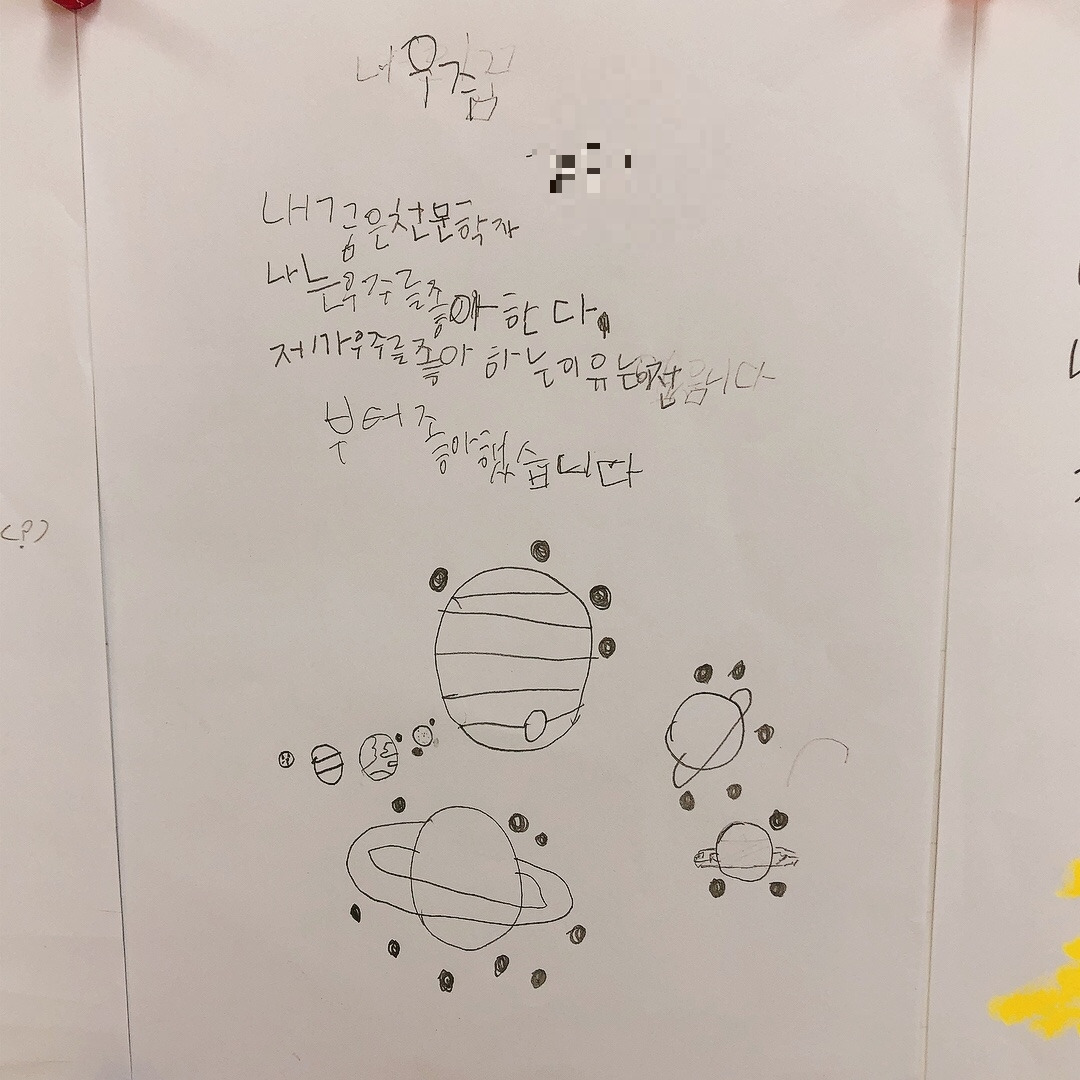 내 우주꿈
내 꿈은 천문학자
나는 우주를 좋아 한다.
제가 우주를 좋아 하는 이유는
부터 좋아했습니다
(?)